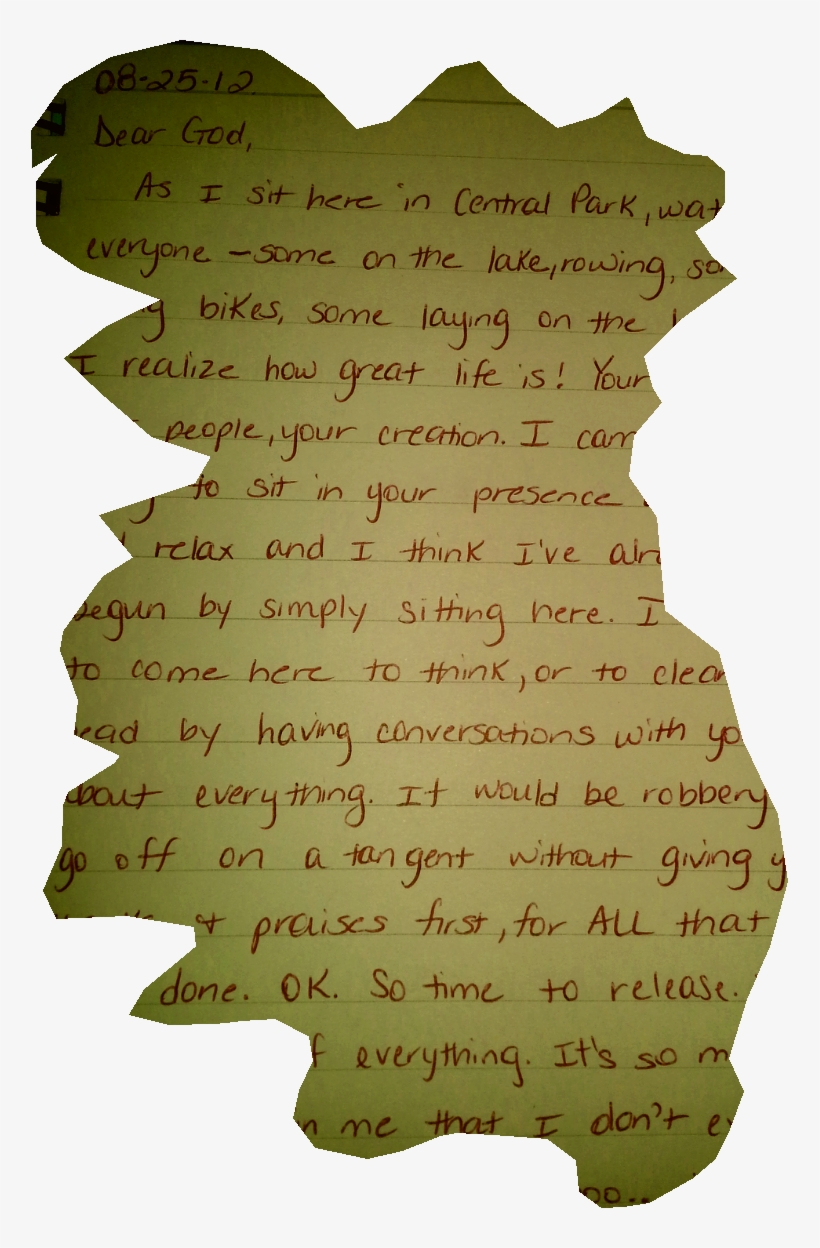 08-25-12
Dear God,
As I sit here in Central Park,
everyone - some on the lake, rowing,
bikes, some laying on the
I realize how great life is! Your
people, your creation. I
to sit in your presence
relax and I think I've
begun by simply sitting here. I
to come here to think, or to clear
by having conversations with
about everything. It would be robbery
go off on a tangent without giving
praises first, for ALL that
done. OK. So time to release.
everything. It's so
me that I don't